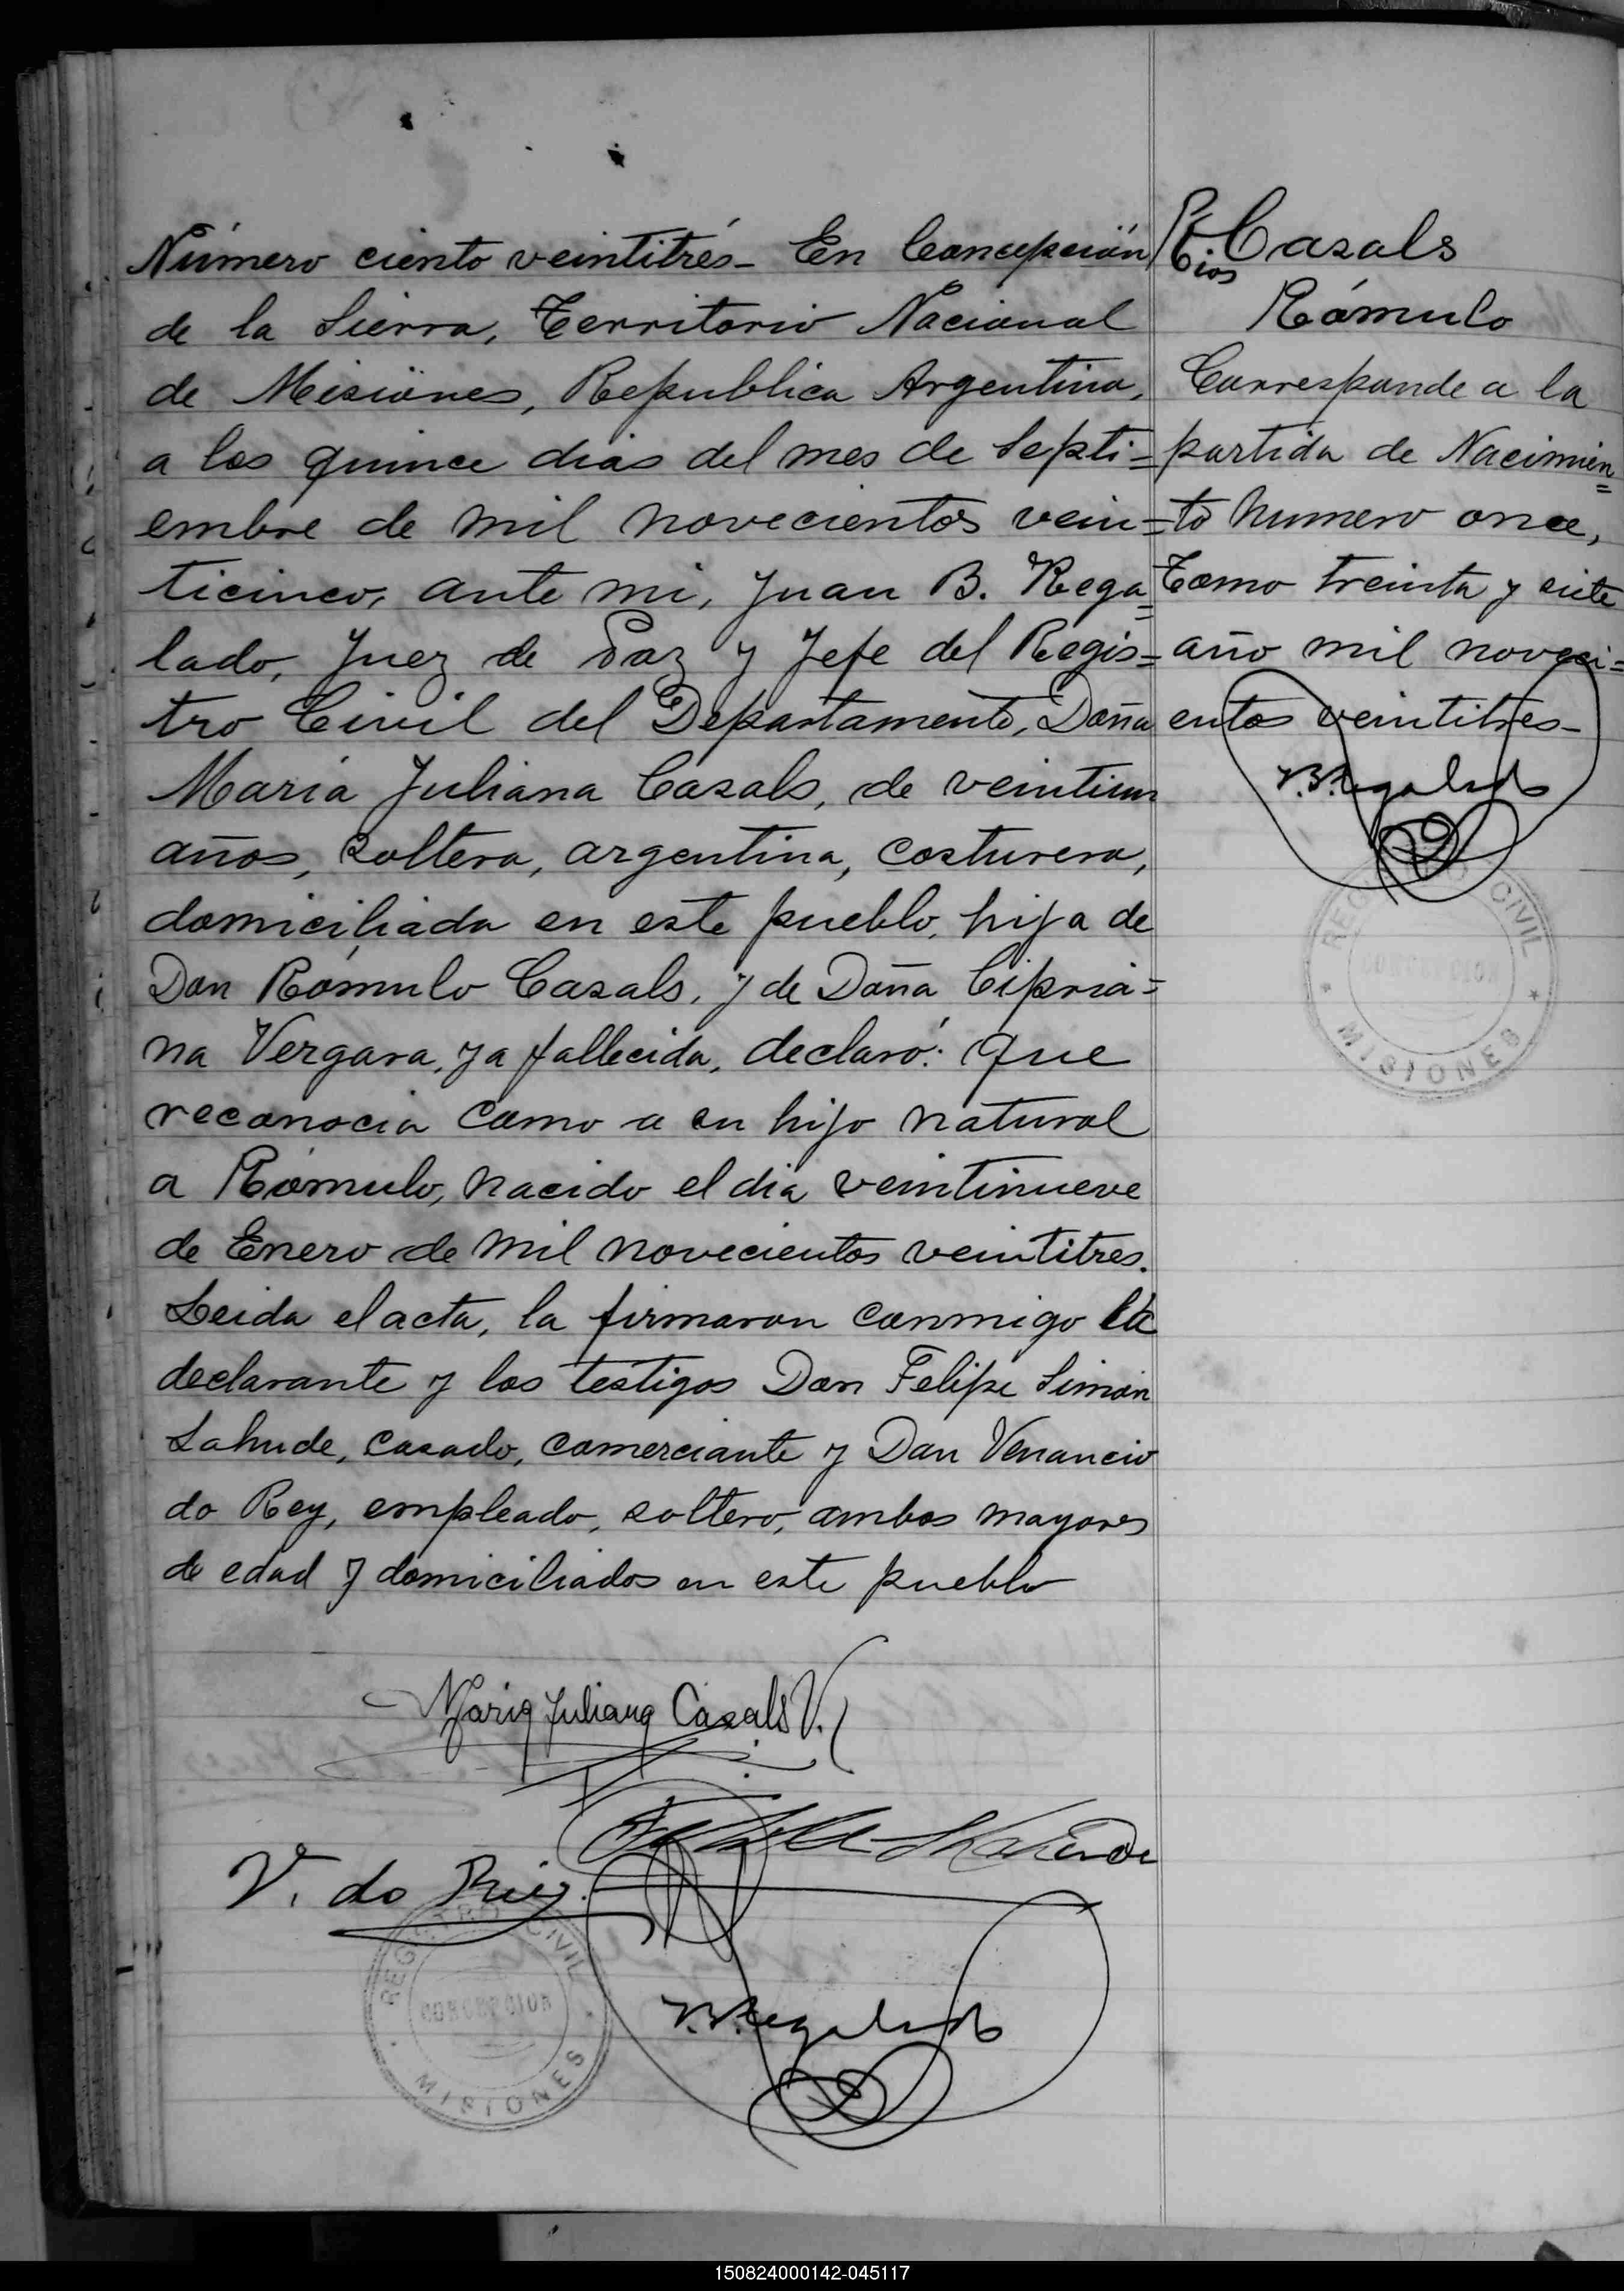 Número ciento veintitrés- En Concepción
de la Sierra, Territorio Nacional
de Misiones, Republica Argentina,
a los quince dias del mes de Septi=
embre de mil novecientos vein=
ticinco, ante mi, Juan B. Rega=
lado, Juez de Paz y Jefe del Regis=
tro Civil del Departamento, Doña
Maria Juliana Casals, de veintiun
años, soltera, argentina, costurera,
domiciliada en este pueblo, hija de
Don Rómulo Casals, y de Doña Cipria=
na Vergara, ya fallecida, declaró: Que
reconocia como a su hijo natural
a Rómulo, nacido el dia veintinueve
de Enero de mil novecientos veintitres.
Leida el acta, la firmaron conmigo la
declarante y los testigos Don Felipe Simón
Lahude, casado, comerciante y Don Venancio
do Rey, empleado, soltero, ambos mayores
de edad y domiciliados en este pueblo
Maria Juliana Casals V.
V. do Rey
J.B. Regalado
REGISTRO CIVIL
CONCEPCION
MISIONES
Casals
Rómulo
Corresponde a la
partida de Nacimien=
to numero once,
Tomo treinta y siete
año mil noveci=
entos veintitres-
J.B. Regalado
REGISTRO CIVIL
CONCEPCION
MISIONES
150824000142-045117